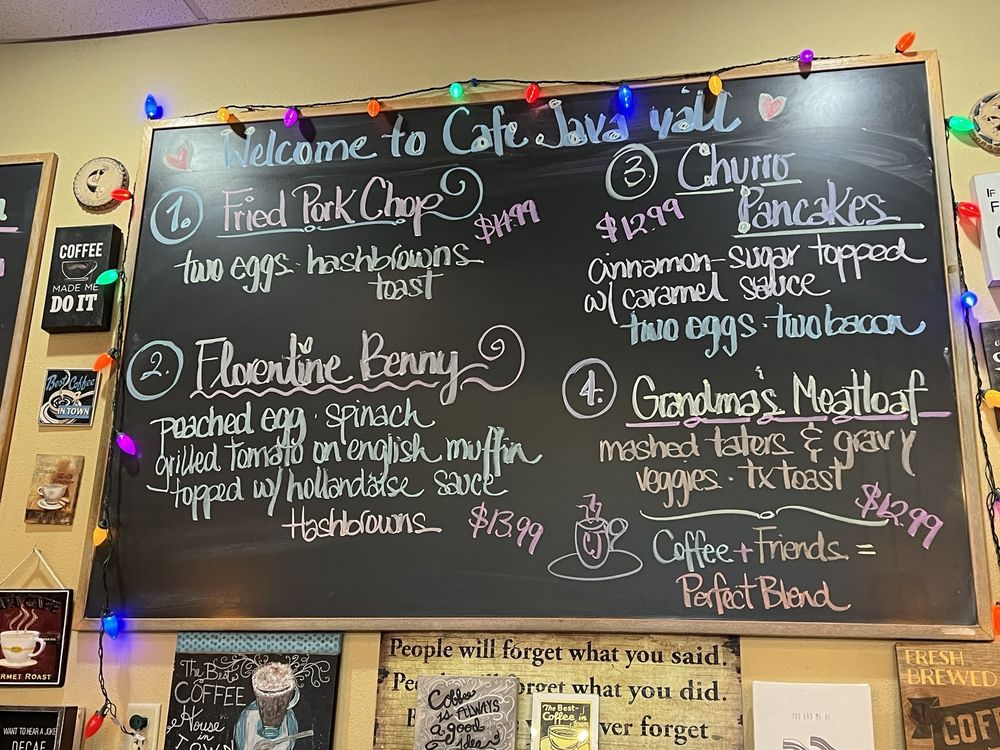 Welcome to Cafe Java yáll
1. Fried Pork Chop
$14.99
two eggs · hashbrowns
toast
2. Florentine Benny
peached egg · spinach
grilled tomato on english muffin
topped w/ hollandaise sauce
Hashbrowns
$13.99
3. Churro
Pancakes
$12.99
cinnamon-sugar topped
w/ caramel sauce
two eggs · two bacon
4. Grandma's Meatloaf
mashed taters & gravy
veggies · tx toast
$12.99
CJ
Coffee + Friends =
Perfect Blend
COFFEE
MADE ME
DO IT
Best Coffee
IN TOWN
GOURMET ROAST
WANT TO HEAR A JOKE
DECAF
The Best
COFFEE
House
in
TOWN
People will forget what you said.
forget what you did.
ver forget
Coffee
is ALWAYS
a good
idea
The Best
Coffee in
town
YOU HAD ME AT
FRESH
BREWED
COF
IF